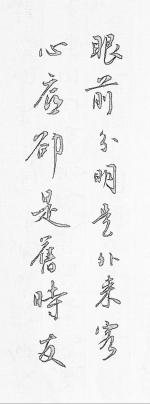 眼前分明是外来客
心底卻是舊時友